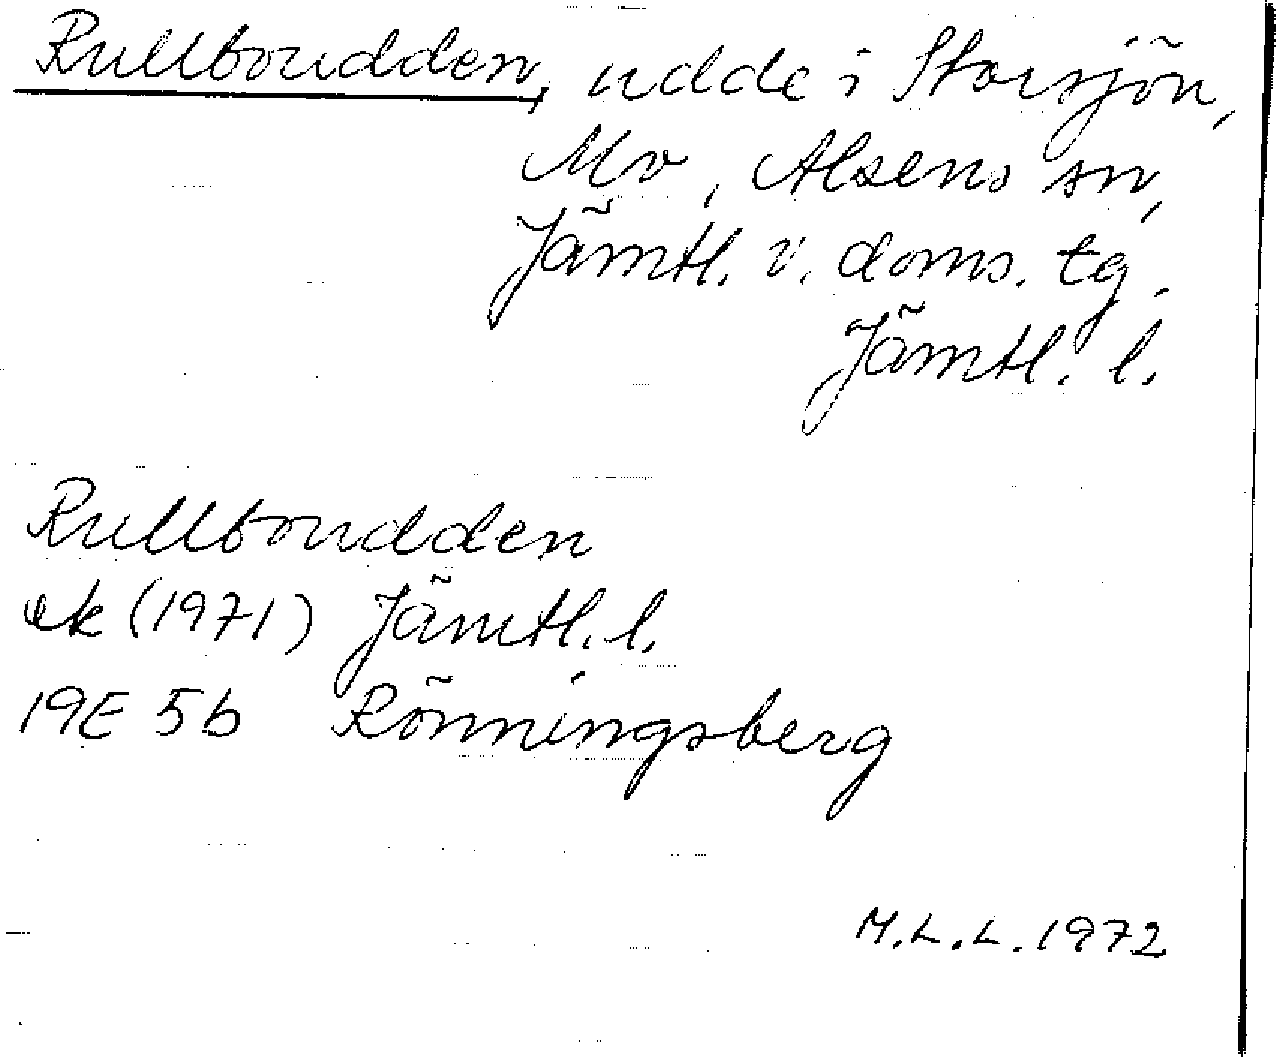 Rullboudden, udde i Storsjön,
Mo, Alsens sn,
Jämtl. v. doms. tg.
Jämtl. l.
Rullboudden
ek (1971) Jämtl. l.
19E 5b Rönningsberg
M.L.L. 1972